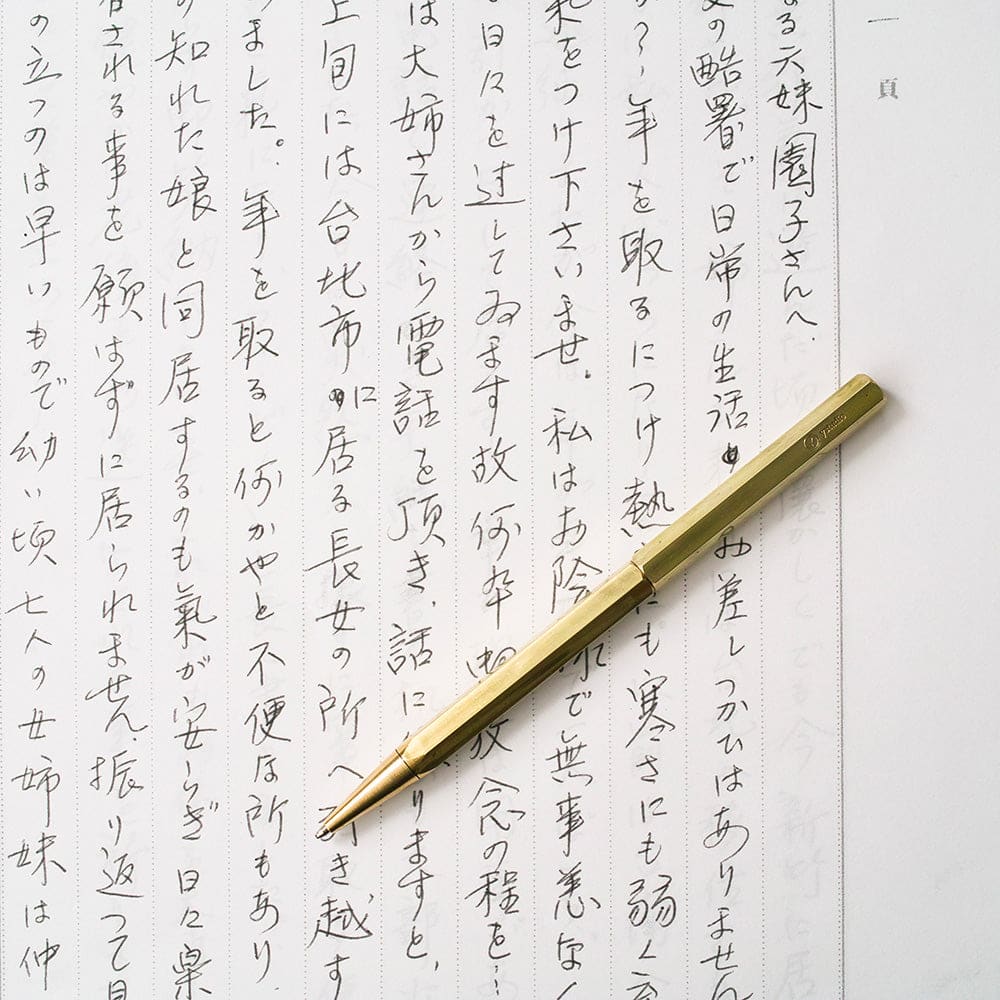 一 頁
る六妹 園子さんへ、
の酷暑で日常の生活 み差しつかひはありません
か？年を取るにつけ熱 にも寒さにも弱く
をつけ下さいませ。私はお陰 で無事恙なく
日々を过してゐます故何卒 放念の程を…
は大姉さんから電話を頂き、話に りますと、
上旬には台北市に居る長女の所へ引き越す
ました。年を取ると何かやと不便な所もあり
の知れた娘と同居するのも氣が安らぎ日々
される事を願はずに居られません。振り返って
の立つのは早いもので幼い頃七人の女姉妹は仲
ystudio